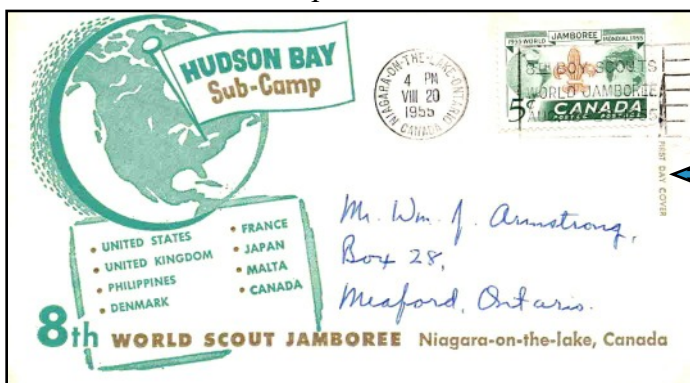 HUDSON BAY
Sub-Camp
NIAGARA-ON-THE-LAKE-ONTARIO
4 PM
VIII 20
1955
CANADA
1955 WORLD JAMBOREE MONDIAL 1955
8TH BOY SCOUTS
WORLD JAMBOREE
5¢ CANADA
POSTES POSTAGE
FIRST DAY COVER
• UNITED STATES
• UNITED KINGDOM
• PHILIPPINES
• DENMARK
• FRANCE
• JAPAN
• MALTA
• CANADA
Mr. Wm. J. Armstrong,
Box 28,
Meaford, Ontario.
8th WORLD SCOUT JAMBOREE Niagara-on-the-lake, Canada